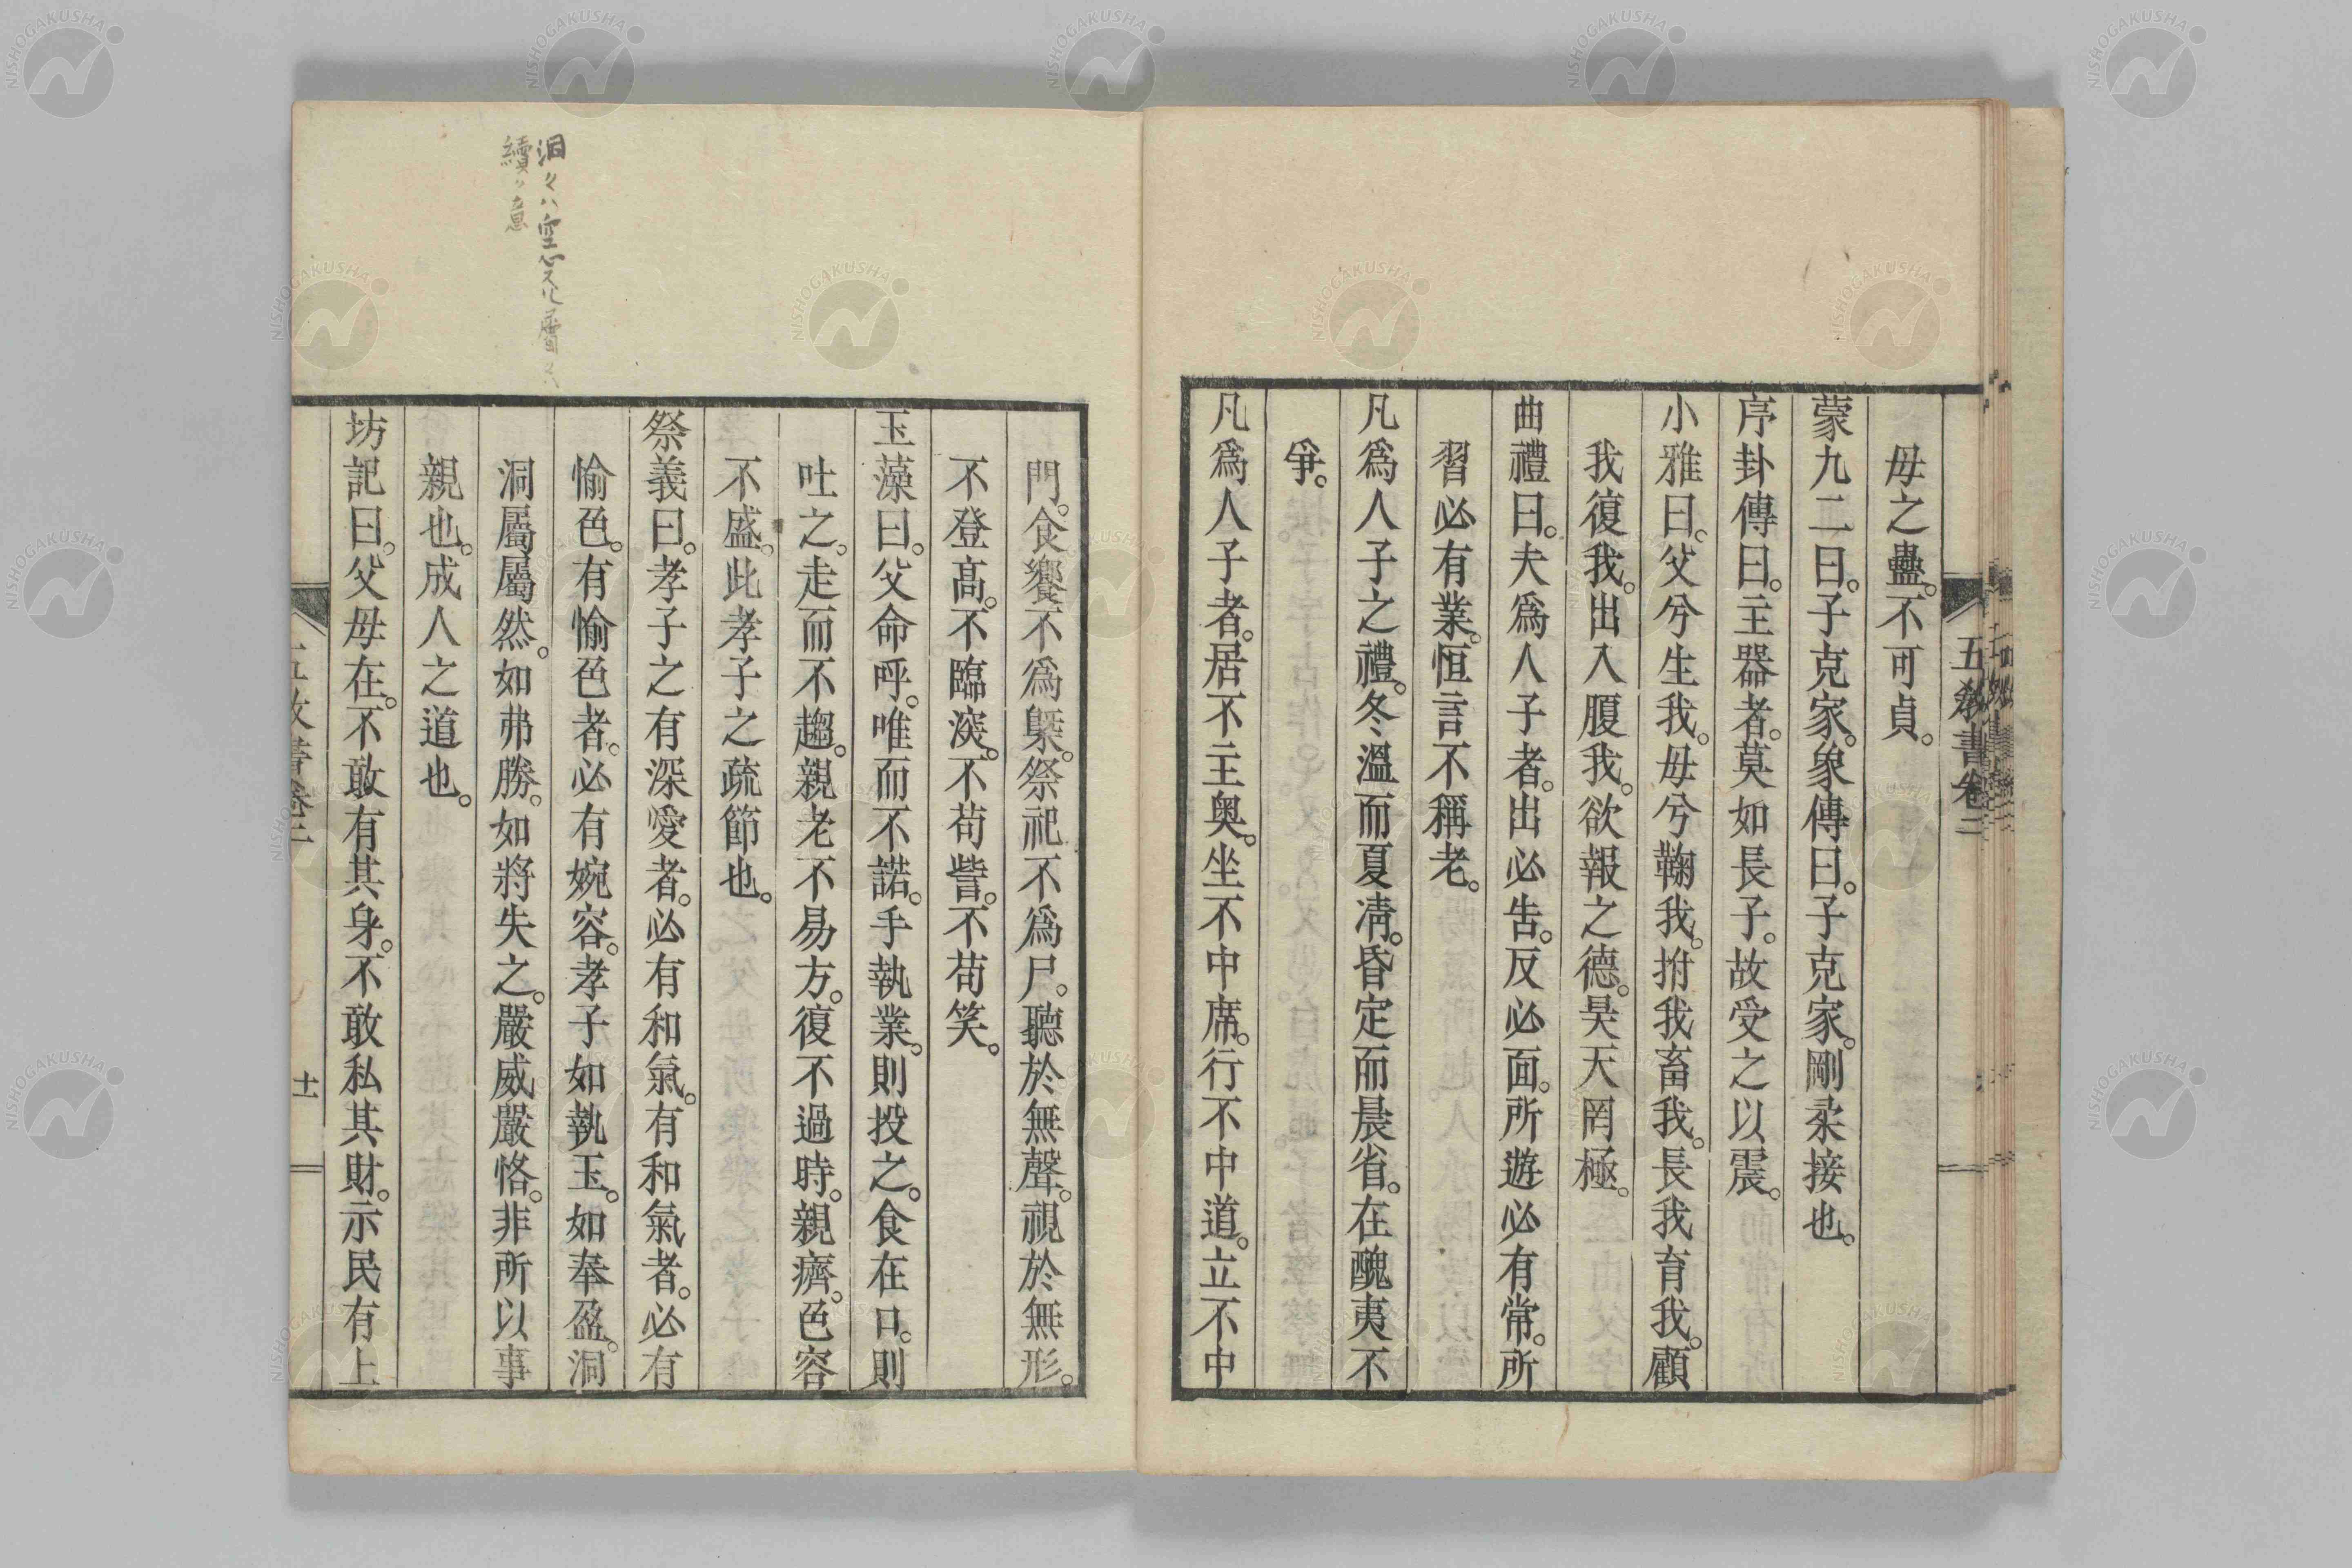 五教書卷二
母之蠱。不可貞。
蒙九二曰。子克家。象傳曰。子克家。剛柔接也。
序卦傳曰。主器者。莫如長子。故受之以震。
小雅曰。父兮生我。母兮鞠我。拊我畜我。長我育我。顧
我復我。出入腹我。欲報之德。昊天罔極。
曲禮曰。夫爲人子者。出必告。反必面。所遊必有常。所
習必有業。恒言不稱老。
凡爲人子之禮。冬溫而夏凊。昏定而晨省。在醜夷不
爭。
凡爲人子者。居不主奧。坐不中席。行不中道。立不中
門。食饗不爲槩。祭祀不爲尸。聽於無聲。視於無形。
不登高。不臨深。不苟訾。不苟笑。
玉藻曰。父命呼。唯而不諾。手執業。則投之。食在口。則
吐之。走而不趨。親老不易方。復不過時。親癠。色容
不盛。此孝子之疏節也。
祭義曰。孝子之有深愛者。必有和氣。有和氣者。必有
愉色。有愉色者。必有婉容。孝子如執玉。如奉盈。洞
洞屬屬然。如弗勝。如將失之。嚴威嚴恪。非所以事
親也。成人之道也。
坊記曰。父母在。不敢有其身。不敢私其財。示民有上
五教書卷二
十一
洞々ハ空心又ハ層々
續々意
NISHOGAKUSHA